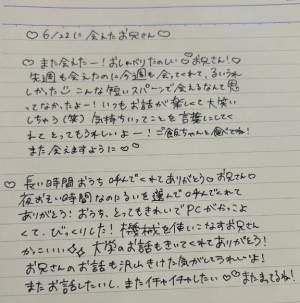 ♡6/22に会えたお兄さん♡
♡また会えたー！おしゃべりたのしい♡お兄さん！
先週も会えたのに今週も会ってくれて、るいうれ
しかった♡こんな短いスパーンで会えるなんて思
ってなかったよー！いつもお話が楽しくて大笑い
しちゃう(笑) 気持ちいってことを言葉にしてく
れてとってもうれしいよー！ご飯ちゃんと食べてね！
また会えますように♡♡
♡長い時間おうち呼んでくれてありがとう♡お兄さん♡
夜おそい時間なのにるいを選んで呼んでくれて
ありがとう！おうち、とってもきれいでPCがかっこよ
くて、びっくりした！機械を使いこなすお兄さん
かっこいい 大学のお話もきいてくれてありがとう！
お兄さんのお話も沢山きけた気がしてうれしいよ！
またお話したいし、またイチャイチャしたい♡♡またまってるね！